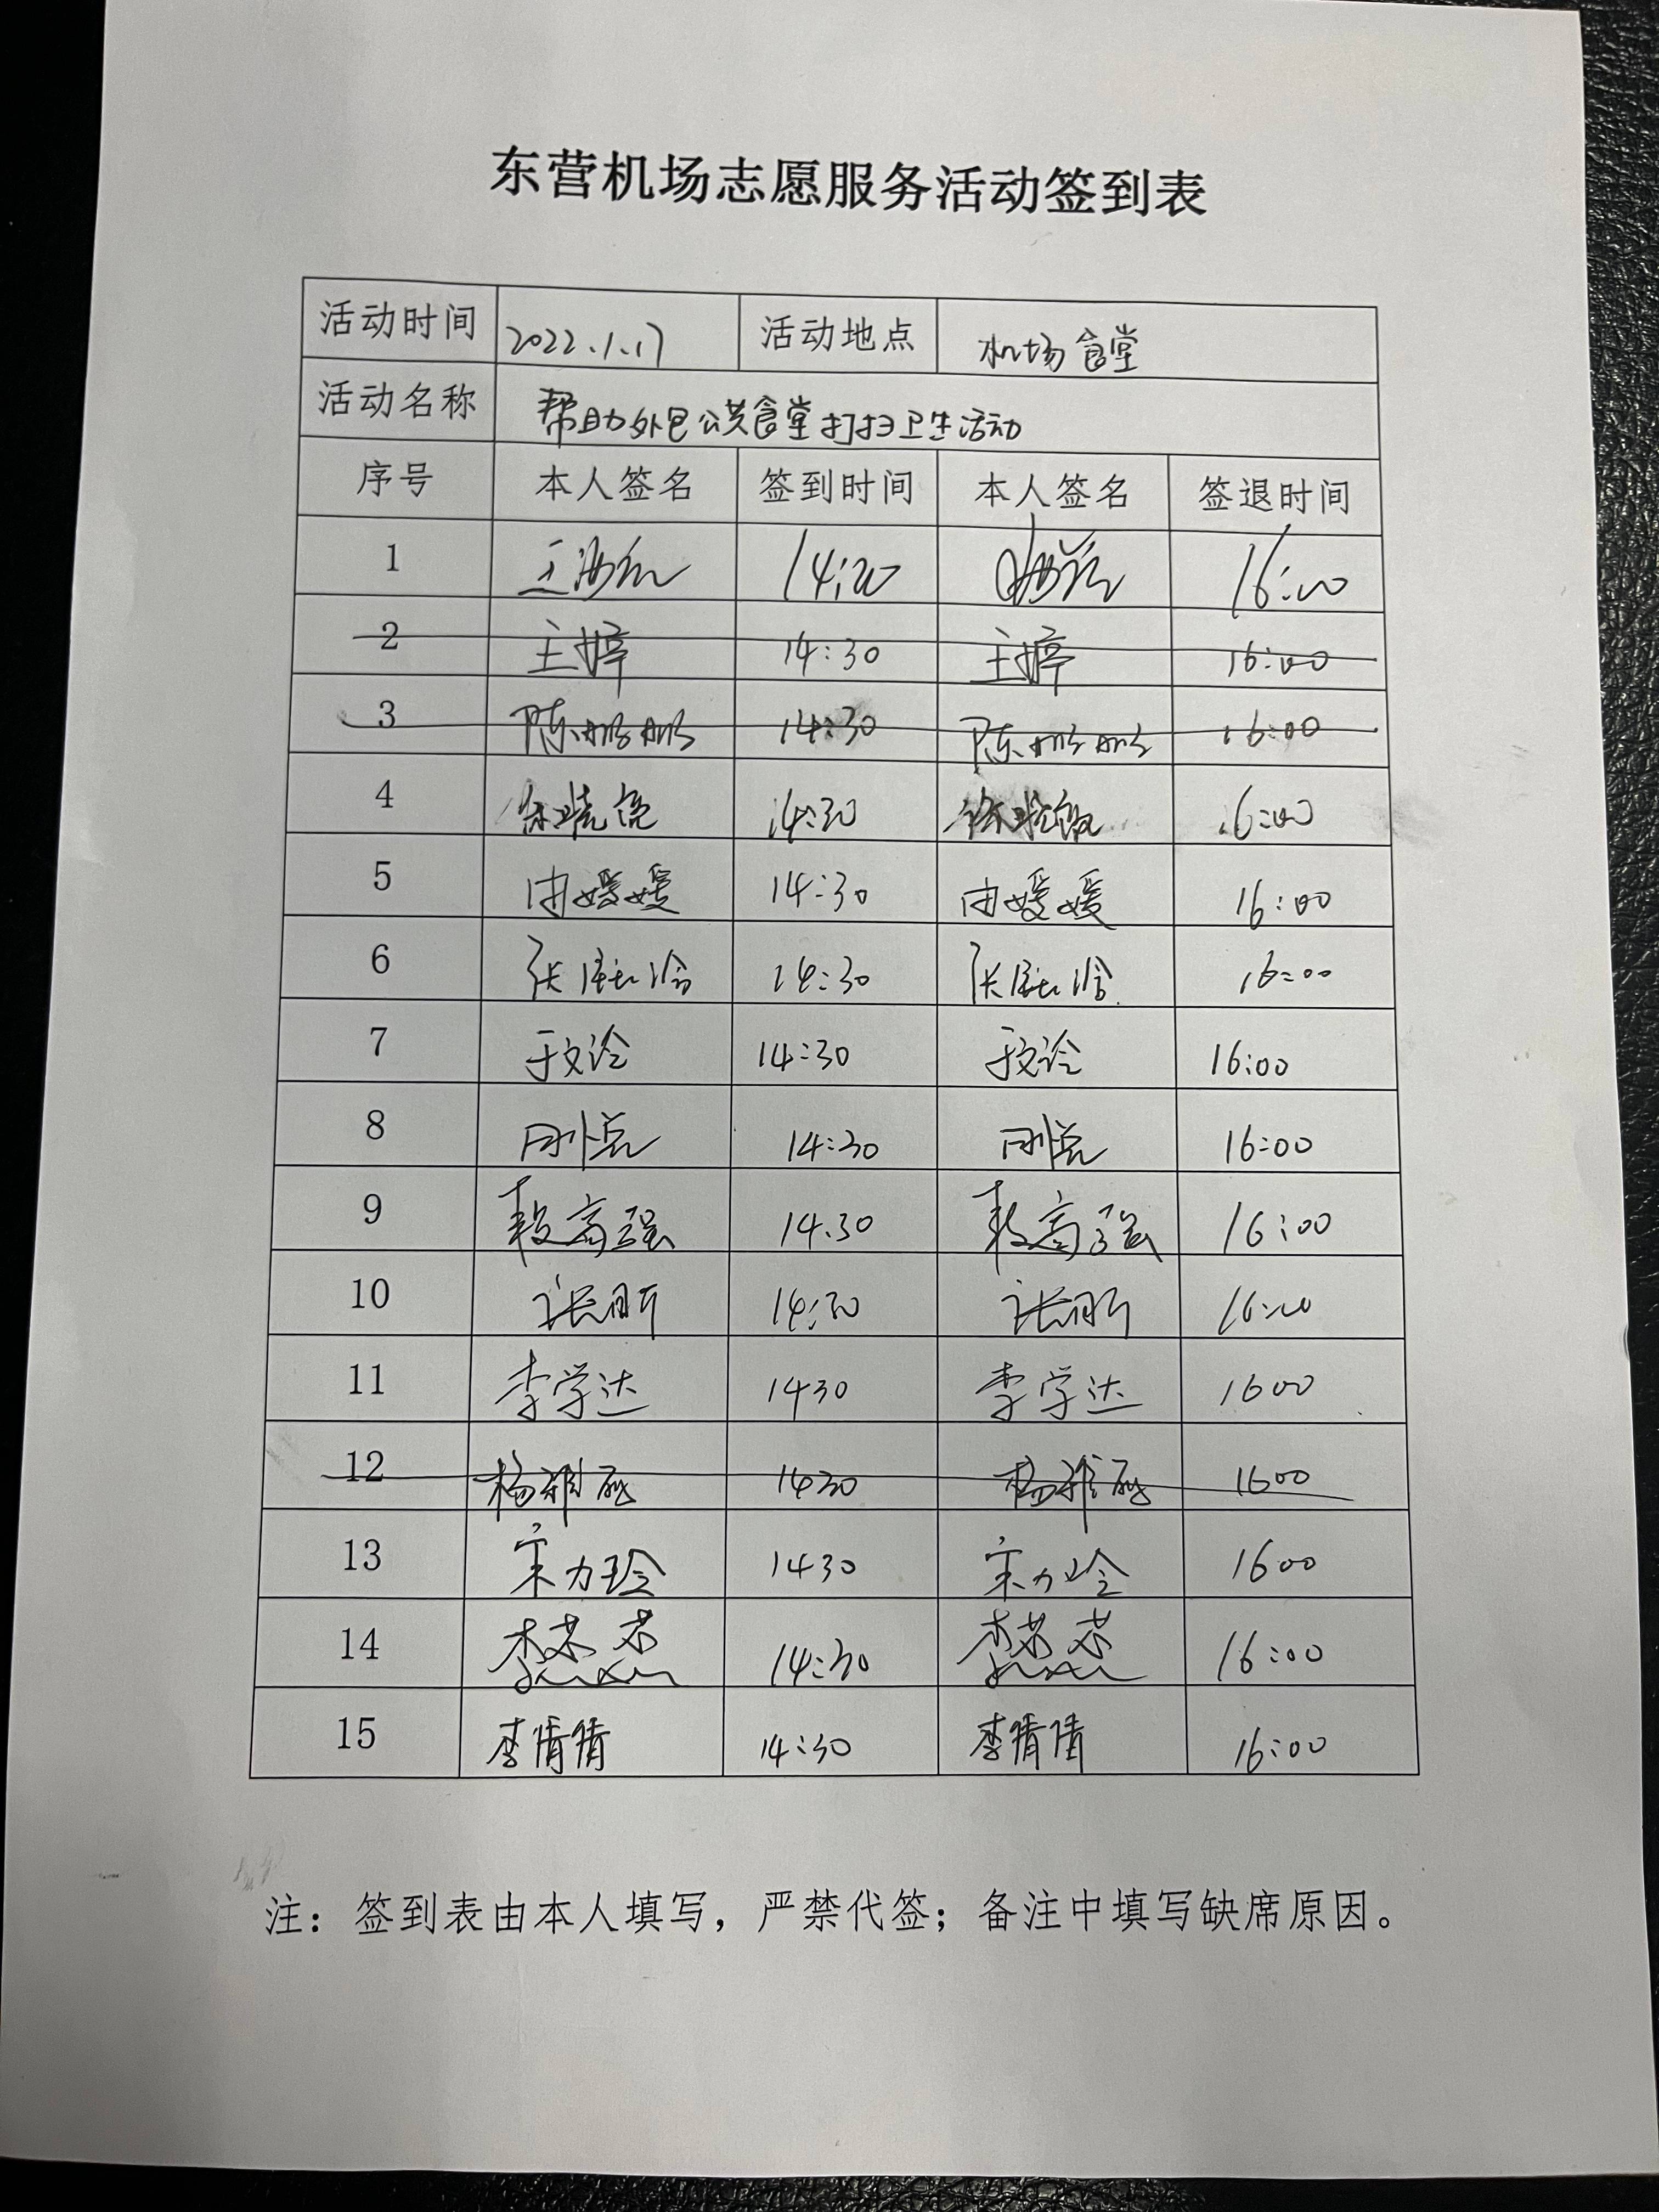 东营机场志愿服务活动签到表
活动时间 2022.1.17 活动地点 机场食堂
活动名称 帮助外包公共食堂打扫卫生活动
序号 本人签名 签到时间 本人签名 签退时间
1 14:20 16:00
2 王婷 14:30 王婷 16:00
3 陈娜娜 14:30 陈娜娜 16:00
4 14:30 16:00
5 由媛媛 14:30 由媛媛 16:00
6 14:30 16:00
7 于文诠 14:30 于文诠 16:00
8 14:30 16:00
9 高强 14:30 高强 16:00
10 张明昕 14:30 张明昕 16:00
11 李学达 1430 李学达 1600
12 杨雅 1430 杨雅 1600
13 宋力玲 1430 宋力玲 1600
14 李 14:30 李 16:00
15 李倩倩 14:30 李倩倩 16:00
注：签到表由本人填写，严禁代签；备注中填写缺席原因。